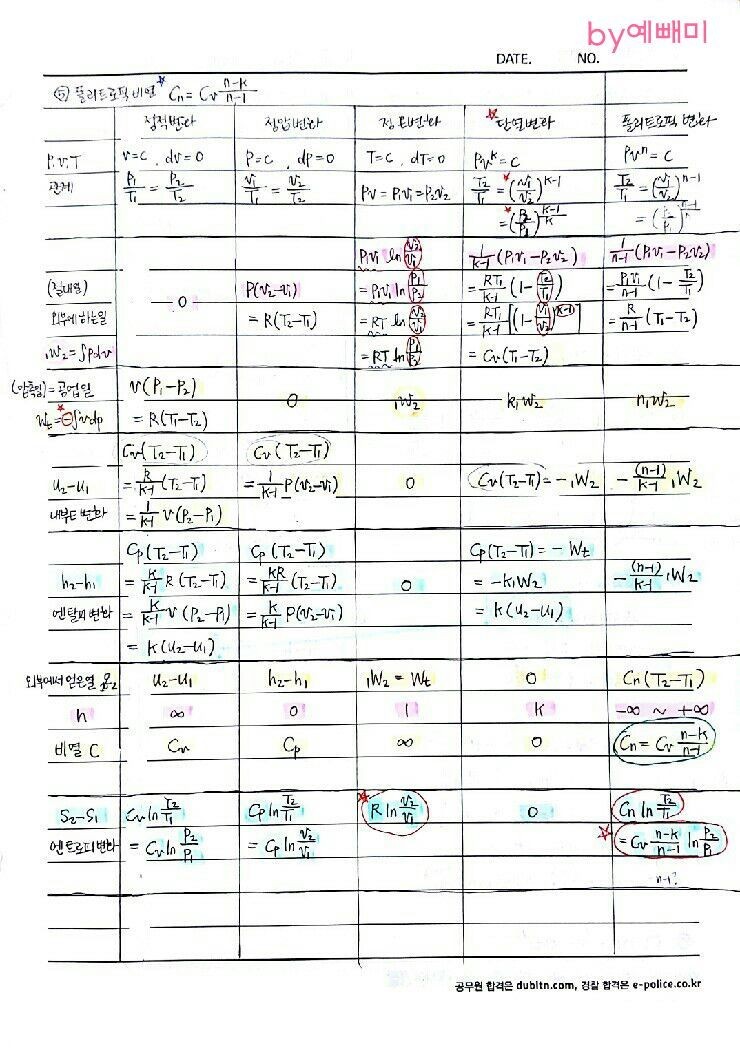 by예빼미
DATE. NO.
⑤ 폴리트로픽 비열 ☆ Cn = Cv (n-k)/(n-1)
정적변화 정압변화 정온변화 ☆단열변화 폴리트로픽 변화
P.V.T 관계
v=C, dv=0
P1/T1 = P2/T2
P=C, dP=0
v1/T1 = v2/T2
T=C, dT=0
Pv = P1v1 = P2v2
Pv^k = C
T2/T1 = ☆(v1/v2)^(k-1)
=☆(P2/P1)^((k-1)/k)
Pv^n = C
T2/T1 = (v1/v2)^(n-1)
(절대일)
외부에 하는일
₁W₂ = ∫pdv
0
P(v2-v1)
= R(T2-T1)
P1v1 ln(v2/v1)
= P1v1 ln(P1/P2)
= RT ln(v2/v1)
= RT ln(P1/P2)
1/(k-1) (P1v1-P2v2)
= RT1/(k-1) (1-T2/T1)
= RT1/(k-1) [1-(v1/v2)^(k-1)]
= Cv(T1-T2)
1/(n-1) (P1v1-P2v2)
= P1v1/(n-1) (1-T2/T1)
= R/(n-1) (T1-T2)
(압축일)=공업일
Wt = ☆⊖∫vdp
v(P1-P2)
= R(T1-T2)
0
₁W₂
k₁W₂
n₁W₂
u2-u1
내부E변화
Cv(T2-T1)
= R/(k-1) (T2-T1)
= 1/(k-1) v(P2-P1)
Cv(T2-T1)
= 1/(k-1) P(v2-v1)
0
Cv(T2-T1) = -₁W₂
-(n-1)/(k-1) ₁W₂
h2-h1
엔탈피변화
Cp(T2-T1)
= k/(k-1) R(T2-T1)
= k/(k-1) v(P2-P1)
= k(u2-u1)
Cp(T2-T1)
= kR/(k-1) (T2-T1)
= k/(k-1) P(v2-v1)
0
Cp(T2-T1) = -Wt
= -k₁W₂
= k(u2-u1)
-(n-1)/(k-1) ₁W₂
외부에서 얻은열 ₁q₂ u2-u1 h2-h1 ₁W₂ = Wt 0 Cn(T2-T1)
n ∞ 0 1 k -∞ ~ +∞
비열 C Cv Cp ∞ 0 Cn = Cv (n-k)/(n-1)
S2-S1
엔트로피변화
Cv ln T2/T1
= Cv ln P2/P1
Cp ln T2/T1
= Cp ln v2/v1
☆R ln v2/v1
0
Cn ln T2/T1
☆= Cv (n-k)/(n-1) ln P2/P1
공무원 합격은 dubltn.com, 경찰 합격은 e-police.co.kr